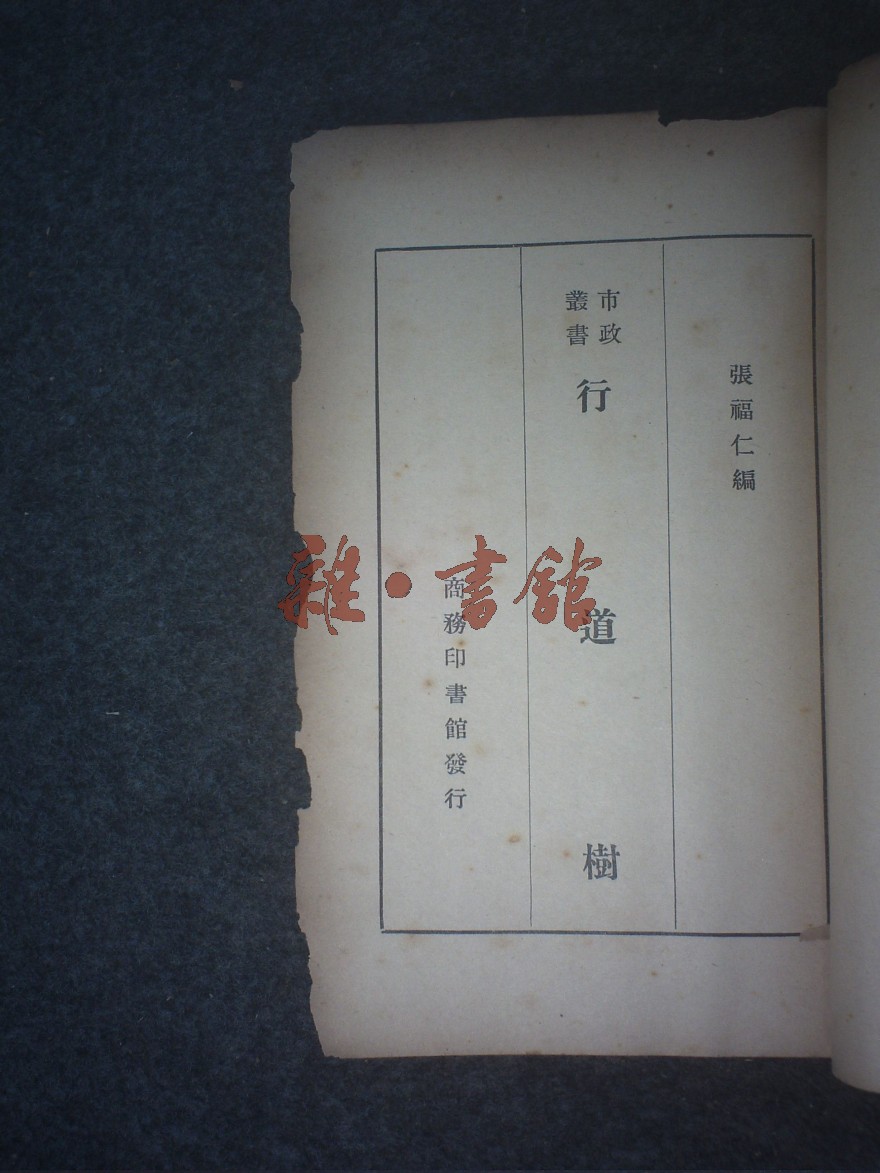 張福仁編
市政
叢書
行道樹
商務印書館發行
雜·書館